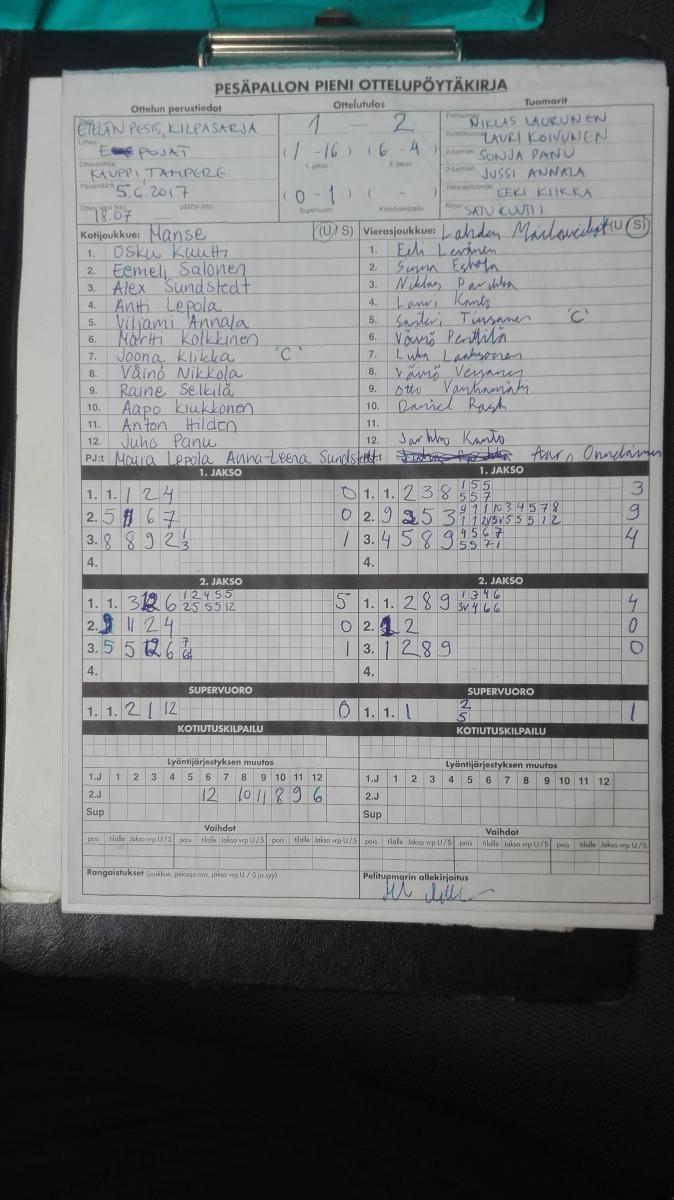 PESÄPALLON PIENI OTTELUPÖYTÄKIRJA
Ottelun perustiedot
Ottelutulos
Tuomarit
ETELÄN PESIS, KILPASARJA
Lohko
POJAT
Ottelupaikka
KAUPPI TAMPERE
Päivämäärä
5.6.2017
18.07
päättyi (klo)
1 - 2
(1 -16) (6 -4)
1. jakso 2. jakso
(0 -1) ( - )
Supervuoro Kotiutuskilpailu
Pelituomari
NIKLAS LAURUNEN
Syöttötuomari
LAURI KOIVUNEN
2-tuomari
SONJA PANU
3-tuomari
JUSSI ANNALA
Takarajatuomari
EEKI KIIKKA
Kirjuri
SATU KUUTTI
Kotijoukkue: Manse (U / S)
1. Osku Kuutti
2. Eemeli Salonen
3. Alex Sundstedt
4. Antti Lepola
5. Viljami Annala
6. Martti Kolkkinen
7. Joona Kiikka 'C'
8. Väinö Nikkola
9. Raine Selkilä
10. Aapo Kiukkonen
11. Anton Hilden
12. Juho Panu
PJ:t Maija Lepola Anna-Leena Sundstedt
Vierasjoukkue: Lahden (U / S)
1. Eeli
2.
3. Niklas
4. Lauri Kanto
5. Santeri 'C'
6. Väinö Penttilä
7. Luka Laaksonen
8. Väinö
9. Otto Vanhamäki
10. Daniel
11.
12. Jarkko Kanto
1. JAKSO
1. 1. 1 2 4 0
2. 5 6 7 0
3. 8 8 9 2 1 3 1
4.
1. JAKSO
1. 1. 2 3 8 1 5 5 3
5 5 7
2. 9 5 3 9
3. 4 5 8 9 4 5 6 7 4
5 5 7 1
4.
2. JAKSO
1. 1. 3 12 6 1 2 4 5 5 5
2 5 5 5 12
2. 9 11 2 4 0
3. 5 5 12 6 7 1
4.
2. JAKSO
1. 1. 2 8 9 1 3 4 6 4
3V 4 6 6
2. 2 0
3. 1 2 8 9 0
4.
SUPERVUORO
1. 1. 2 1 12 0
SUPERVUORO
1. 1. 1 2 1
5
KOTIUTUSKILPAILU
KOTIUTUSKILPAILU
Lyöntijärjestyksen muutos
1.J 1 2 3 4 5 6 7 8 9 10 11 12
2.J 12 10 11 8 9 6
Sup
Lyöntijärjestyksen muutos
1.J 1 2 3 4 5 6 7 8 9 10 11 12
2.J
Sup
Vaihdot
pois tilalle Jakso vrp U/S pois tilalle Jakso vrp U/S pois tilalle Jakso vrp U/S
Vaihdot
pois tilalle Jakso vrp U/S pois tilalle Jakso vrp U/S pois tilalle Jakso vrp U/S
Rangaistukset (joukkue, pelaaja nro, jakso vrp U / S ja syy)
Pelituomarin allekirjoitus